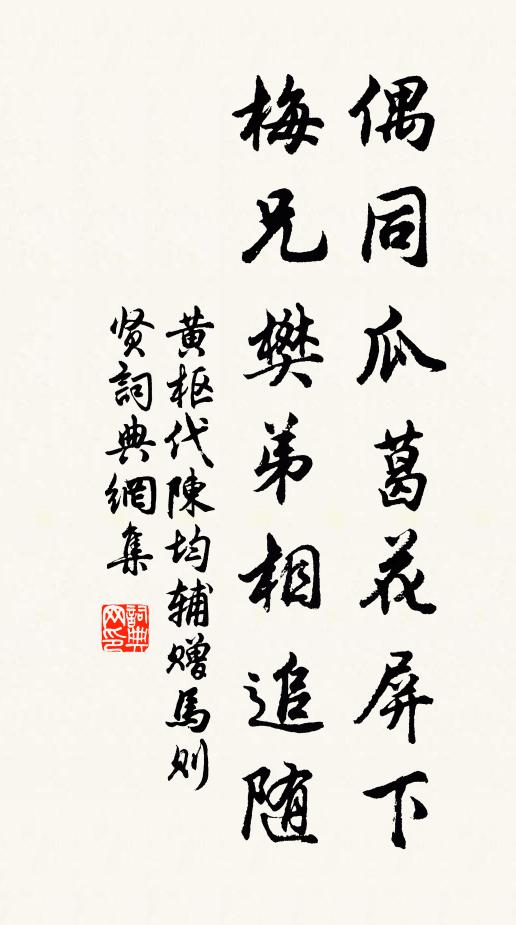 偶同瓜葛花屏下
梅兄樊弟相追随
黄枢代陳均辅赠馬则
贤詞典網集
詞典
网印